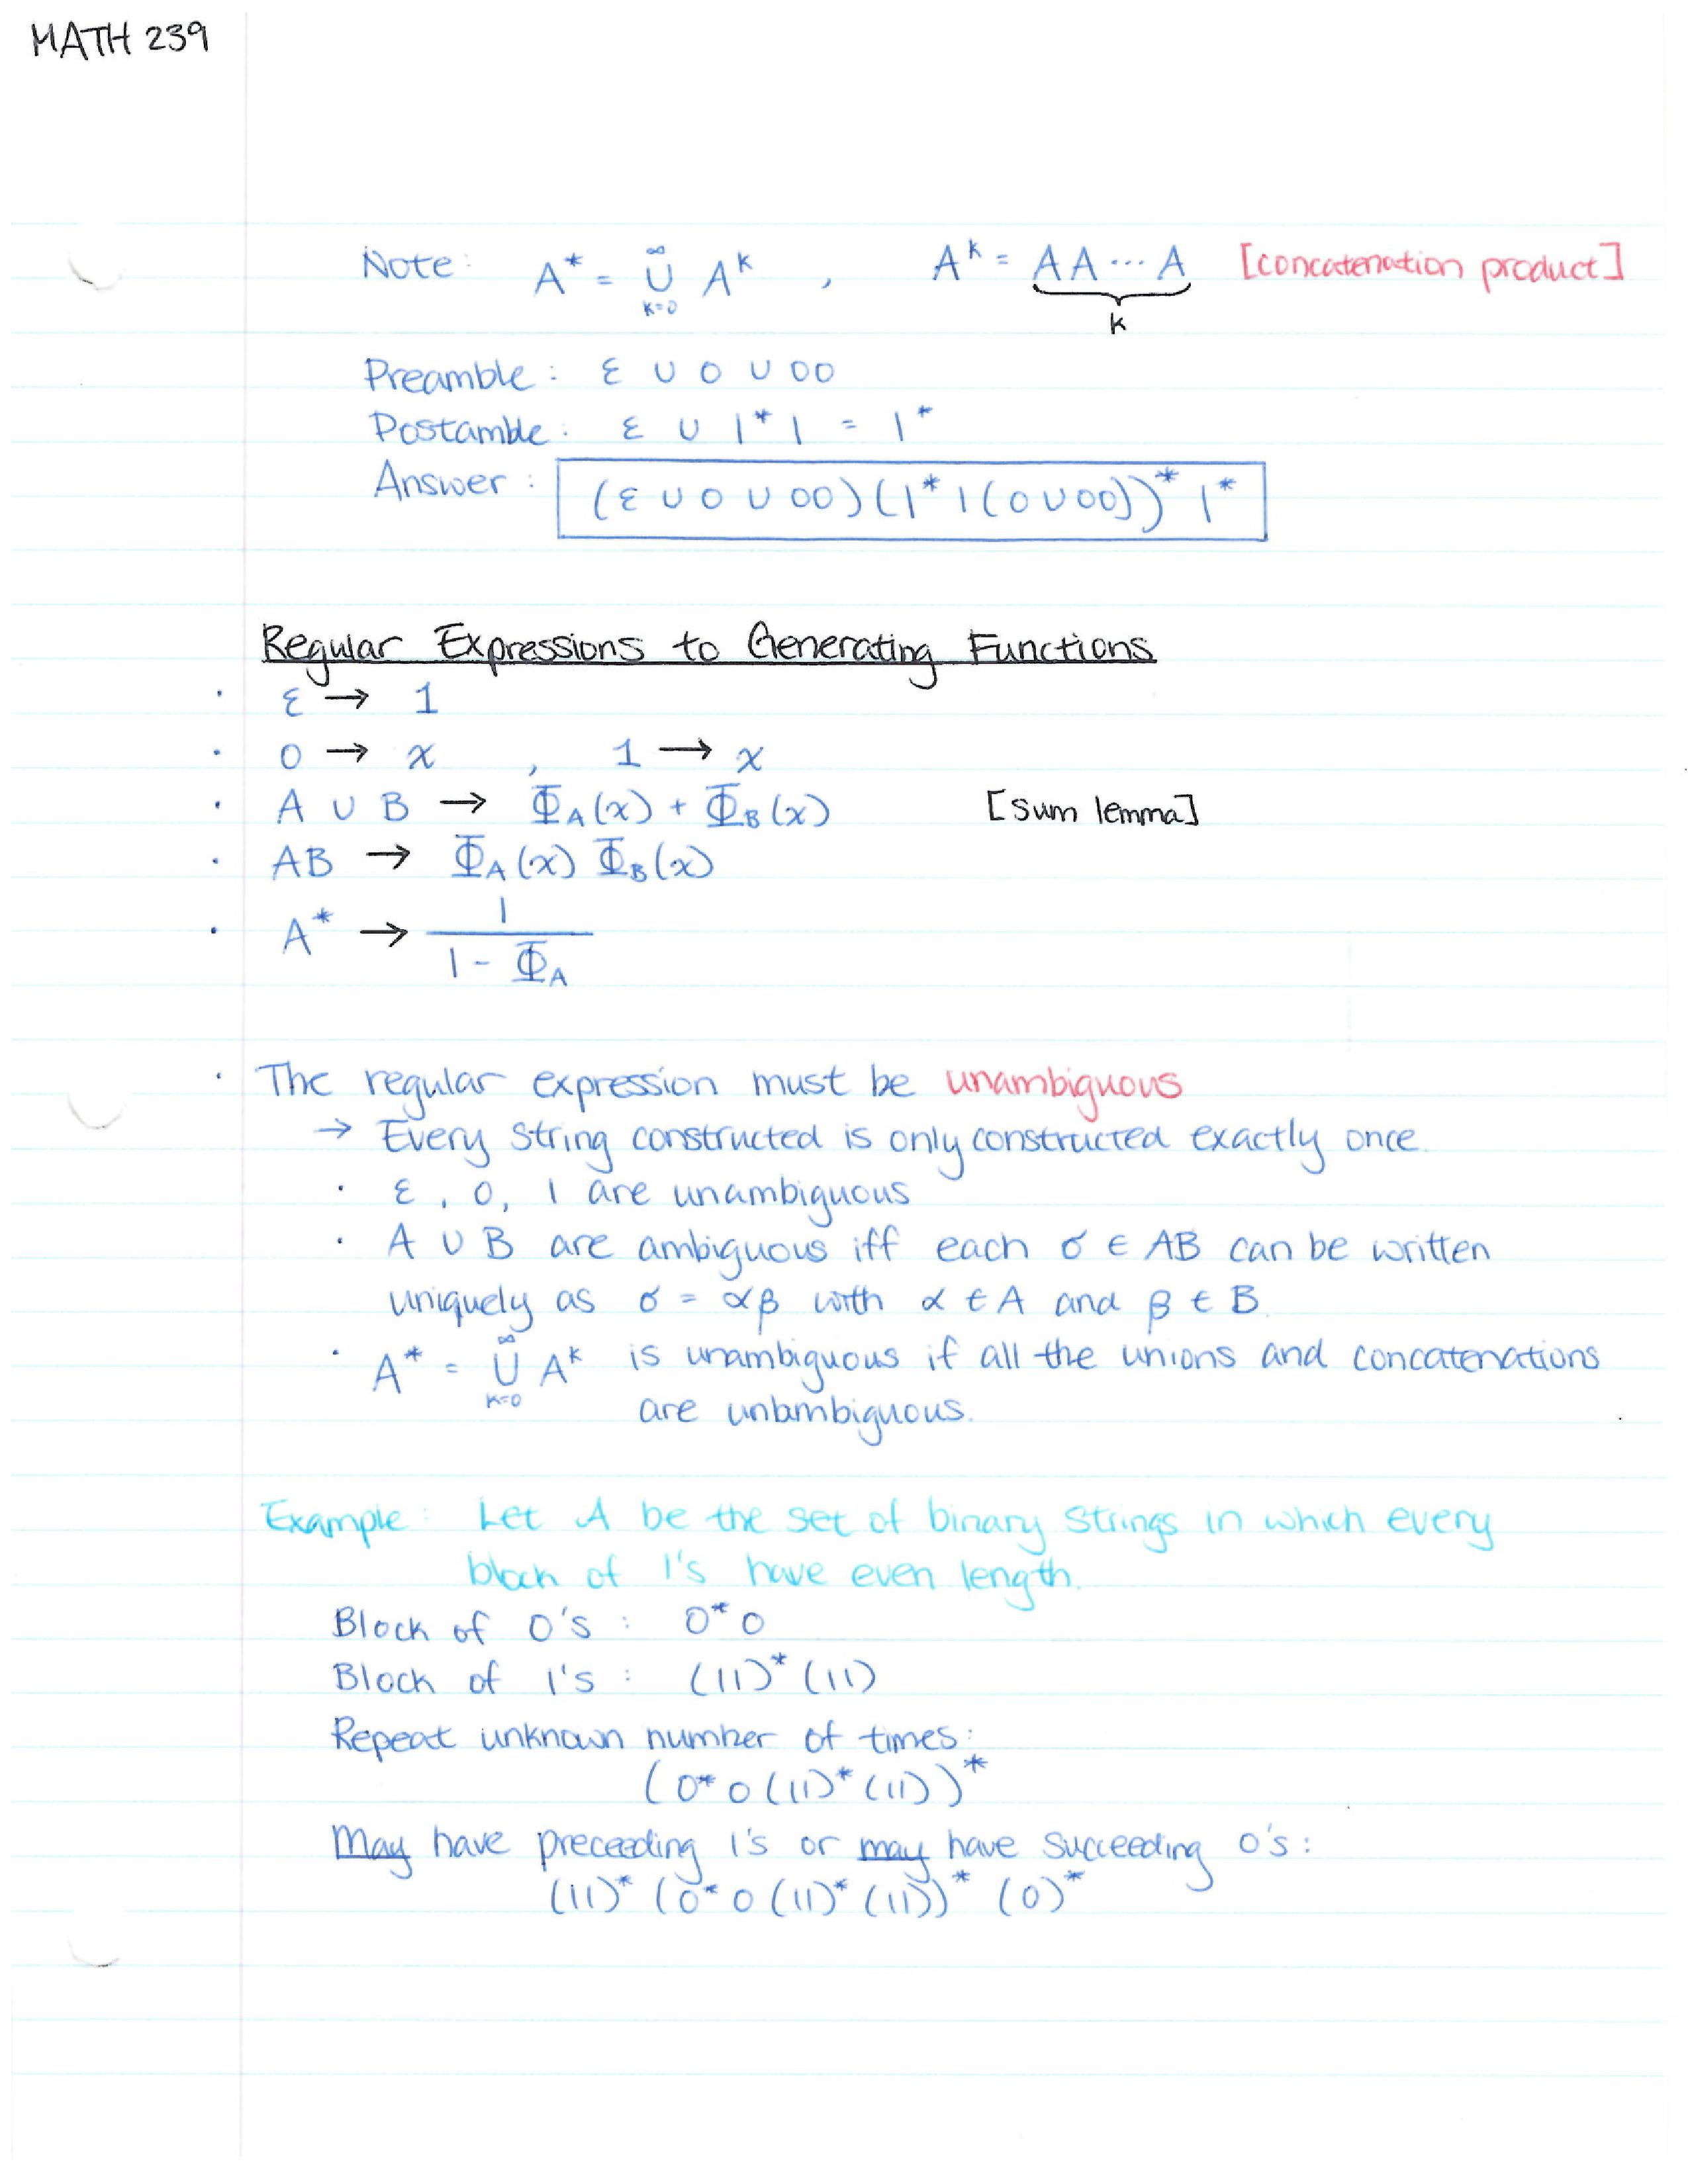 MATH 239
Note: A* = ∞∪k=0 A^k , A^k = AA⋯A [concatenation product]
k
Preamble: ε ∪ 0 ∪ 00
Postamble: ε ∪ 1*1 = 1*
Answer: (ε ∪ 0 ∪ 00)(1*1(0∪00))*1*
Regular Expressions to Generating Functions
· ε → 1
· 0 → x , 1 → x
· A ∪ B → Φ_A(x) + Φ_B(x) [sum lemma]
· AB → Φ_A(x) Φ_B(x)
· A* → 1/(1 - Φ_A)
· The regular expression must be unambiguous
→ Every string constructed is only constructed exactly once.
· ε, 0, 1 are unambiguous
· A ∪ B are ambiguous iff each σ ∈ AB can be written
uniquely as σ = αβ with α ∈ A and β ∈ B.
· A* = ∞∪k=0 A^k is unambiguous if all the unions and concatenations
are unbmbiguous.
Example: Let A be the set of binary strings in which every
block of 1's have even length.
Block of 0's : 0*0
Block of 1's : (11)*(11)
Repeat unknown number of times:
(0*0(11)*(11))*
May have preceeding 1's or may have succeeding 0's:
(11)*(0*0(11)*(11))*(0)*